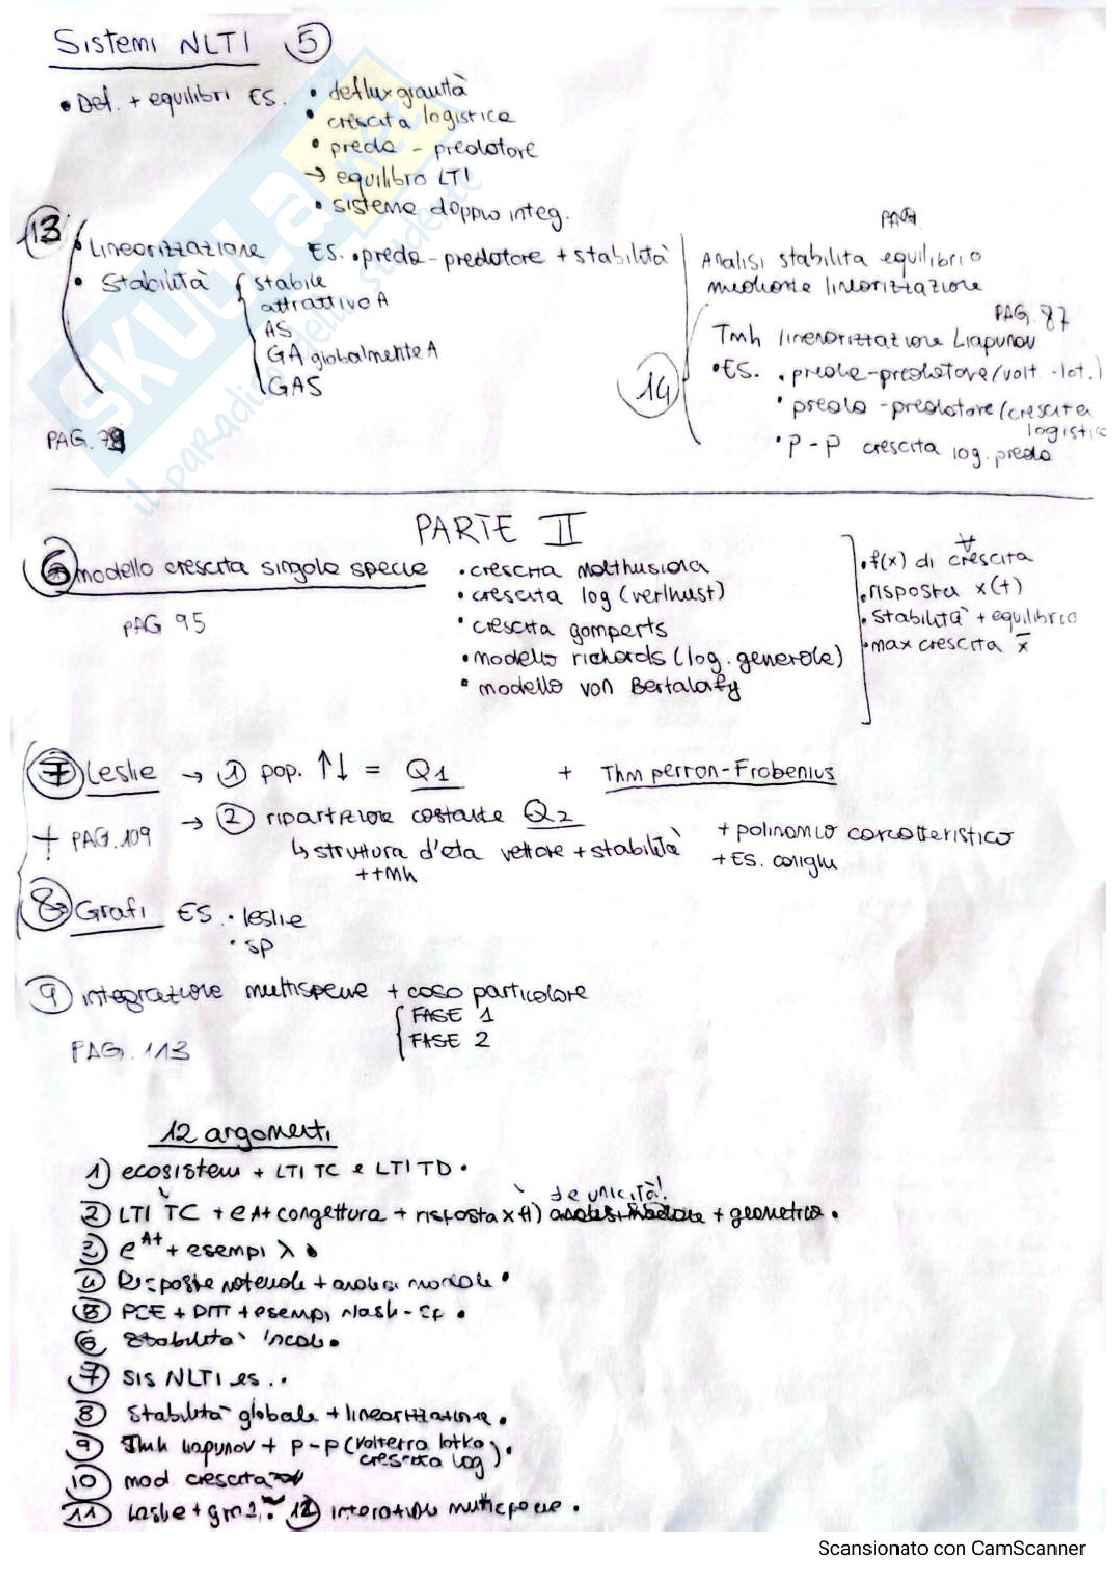 Sistemi NLTI 5
• Def. + equilibri ES. • deflux gravità
• crescita logistica
• preda - predatore
→ equilibro LTI
• sistema doppio integ.
13
• Linearizzazione ES. • preda-predatore + stabilità
• Stabilità { stabile
attrattivo A
AS
GA globalmente A
GAS
PAG. 79
PAG
Analisi stabilita equilibrio
mediante linearizzazione
PAG. 87
Tmh linearizzazione Liapunov
14
• ES. • preda-predatore (volt.-lot.)
• preda-predatore (crescita
logistic
• P-P crescita log. preda
PARTE II
6 modello crescita singola specie
PAG 95
• crescita malthusiana
• crescita log (verlhust)
• crescita gomperts
• modello richards (log. generale)
• modello von Bertalafy
∀
• f(x) di crescita
• risposta x(t)
• stabilità + equilibrio
• max crescita x̄
7 Leslie → 1 pop. ↑↓ = Q1 + Thm perron-Frobenius
+ PAG. 109 → 2 ripartizione costante Q2
↳ struttura d'eta vettore + stabilità
+ tmh
+ polinomio caratteristico
+ ES. conigli
8 Grafi ES. • leslie
• SP
9 integrazione multispecie + caso particolare
{ FASE 1
FASE 2
PAG. 113
12 argomenti
1) ecosistemi + LTI TC e LTI TD •
de unicità!
2) LTI TC + eAt congettura + risposta x(t) + geometrica •
3) eAt + esempi λ •
4) Risposte notevole + analisi modale •
5) PCE + DTT + esempi Nash-cf •
6) Stabilità •
7) SIS NLTI es. •
8) Stabilità globale + linearizzazione •
9) Tmh liapunov + P-P (volterra lotka, crescita log) •
10) mod crescita
11) Leslie + 12) interazione multispecie •
SKUOLA.net
il paradiso dello studente
Scansionato con CamScanner